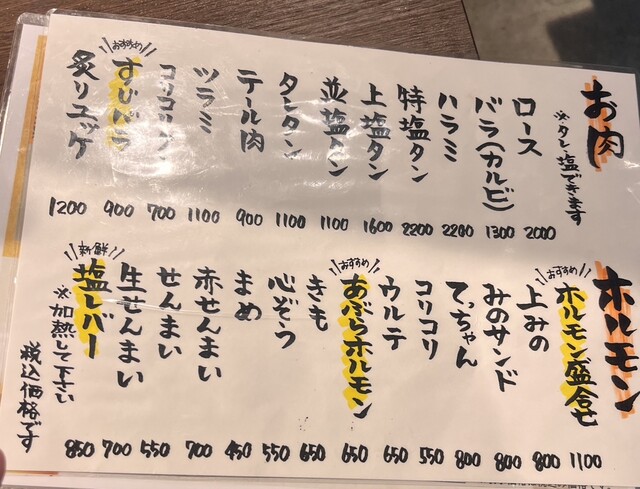 お肉
※タレ・塩できます
ロース 2000
バラ(カルビ) 1300
ハラミ 2200
特塩タン 2200
上塩タン 1600
並塩タン 1100
タンタン 1100
テール肉 900
ツラミ 1100
コリコリ 700
おすすめ
すじバラ 900
炙りユッケ 1200
ホルモン
おすすめ
ホルモン盛合せ 1100
上みの 800
みのサンド 800
てっちゃん 800
コリコリ 550
ウルテ 650
おすすめ
あぶらホルモン 650
きも 650
心ぞう 550
まめ 450
赤せんまい 700
せんまい 550
生せんまい 700
新鮮
塩レバー 850
※加熱して下さい
税込価格です